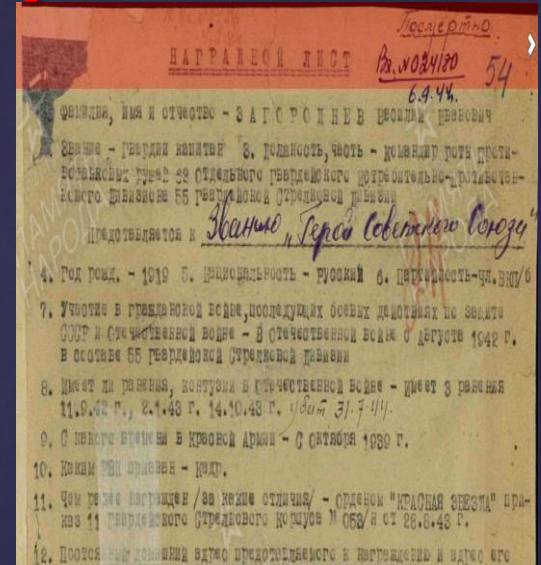 Посмертно
НАГРАДНОЙ ЛИСТ
Вх. №024180
6.9.44.
54
Фамилия, имя и отчество - ЗАГОРОДНЕВ Василий Иванович
Звание - Гвардии капитан 3. Должность, часть - Командир роты проти-
вотанковых ружей отдельного гвардейского истребительно-противотан-
кового дивизиона 55 Гвардейской Стрелковой дивизии
Представляется к Званию „Герой Советского Союза"
4. Год рожд. - 1919 5. Национальность - Русский 6. Партийность-чл.ВКП/б
7. Участие в гражданской войне, последующих боевых действиях по защите
СССР и Отечественной войне - В Отечественной войне с Августа 1942 г.
в составе 55 Гвардейской Стрелковой дивизии
8. Имеет ли ранения, контузии в Отечественной войне - Имеет 3 ранения
11.9.42 г., 2.1.43 г. 14.10.43 г. убит 31.7.44.
9. С какого времени в Красной Армии - С Октября 1939 г.
10. Каким РВК призван - Кадр.
11. Чем ранее награжден /за какие отличия/ - Орденом "КРАСНАЯ ЗВЕЗДА" при-
каз 11 Гвардейского Стрелкового Корпуса № 058/н от 28.8.43 г.
12. Постоянный домашний адрес представляемого к награждению и адрес его
ПАМЯТЬ
НАРОДА